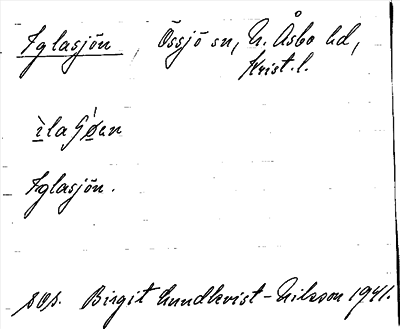 Iglasjön, Össjö sn, N. Åsbo hd,
Krist. l.
Iglasjön.
sOp. Birgit Lundkvist-Nilsson 1941.